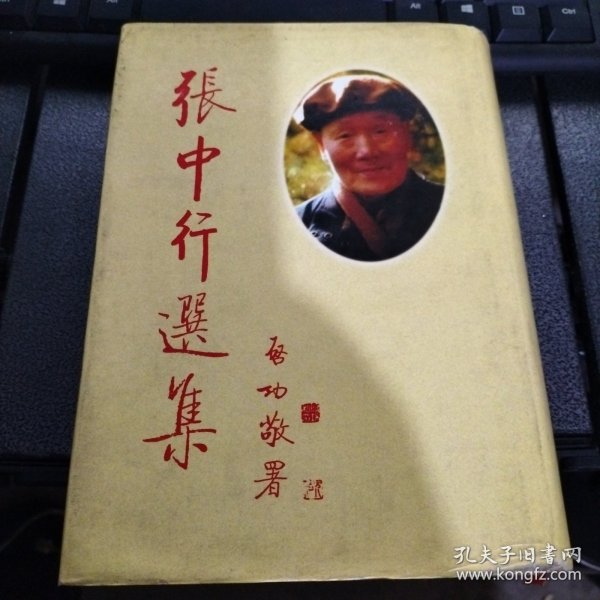 張中行選集
啓功敬署
Alt
Ctrl
孔夫子旧书网
www.kongfz.com